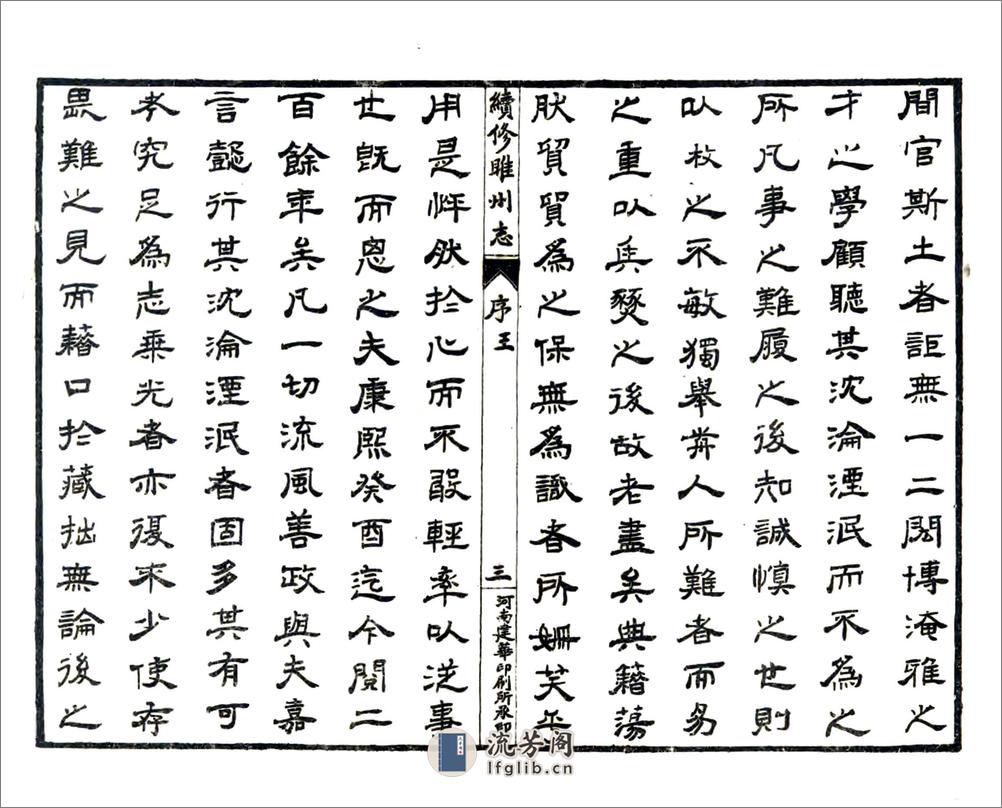 間官斯土者詎無一二閎博淹雅之
才之學顧聽其沈淪湮泯而不為之
所凡事之難履之後知誠慎之世則
以枚之不敏獨舉人所難者而易
之重以兵燹之後故老盡矣典籍蕩
肰貿貿為之保無為識者所姍笑乎
續修睢州志
序王
三
河南建華印刷所承印
用是怦肰於心而不敢輕率以從事
也既而思之夫康熙癸酉迄今閱二
百餘年矣凡一切流風善政與夫嘉
言懿行其沈淪湮泯者固多其有可
考究足為志乘光者亦復不少使存
畏難之見而藉口於藏拙無論後之
流芳阁
lfglib.cn